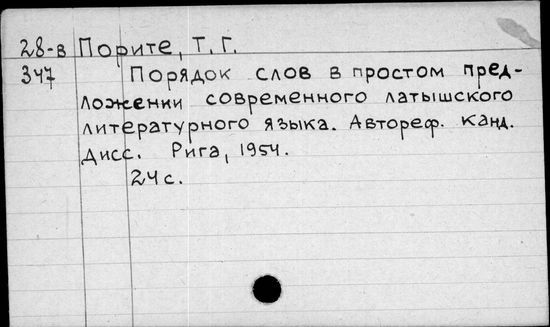 28-в Порите, Т. Г.
347 Порядок слов в простом пред-
ложении современного латышского
литературного языка. Автореф. канд.
дисс. Рига, 1954.
24 с.